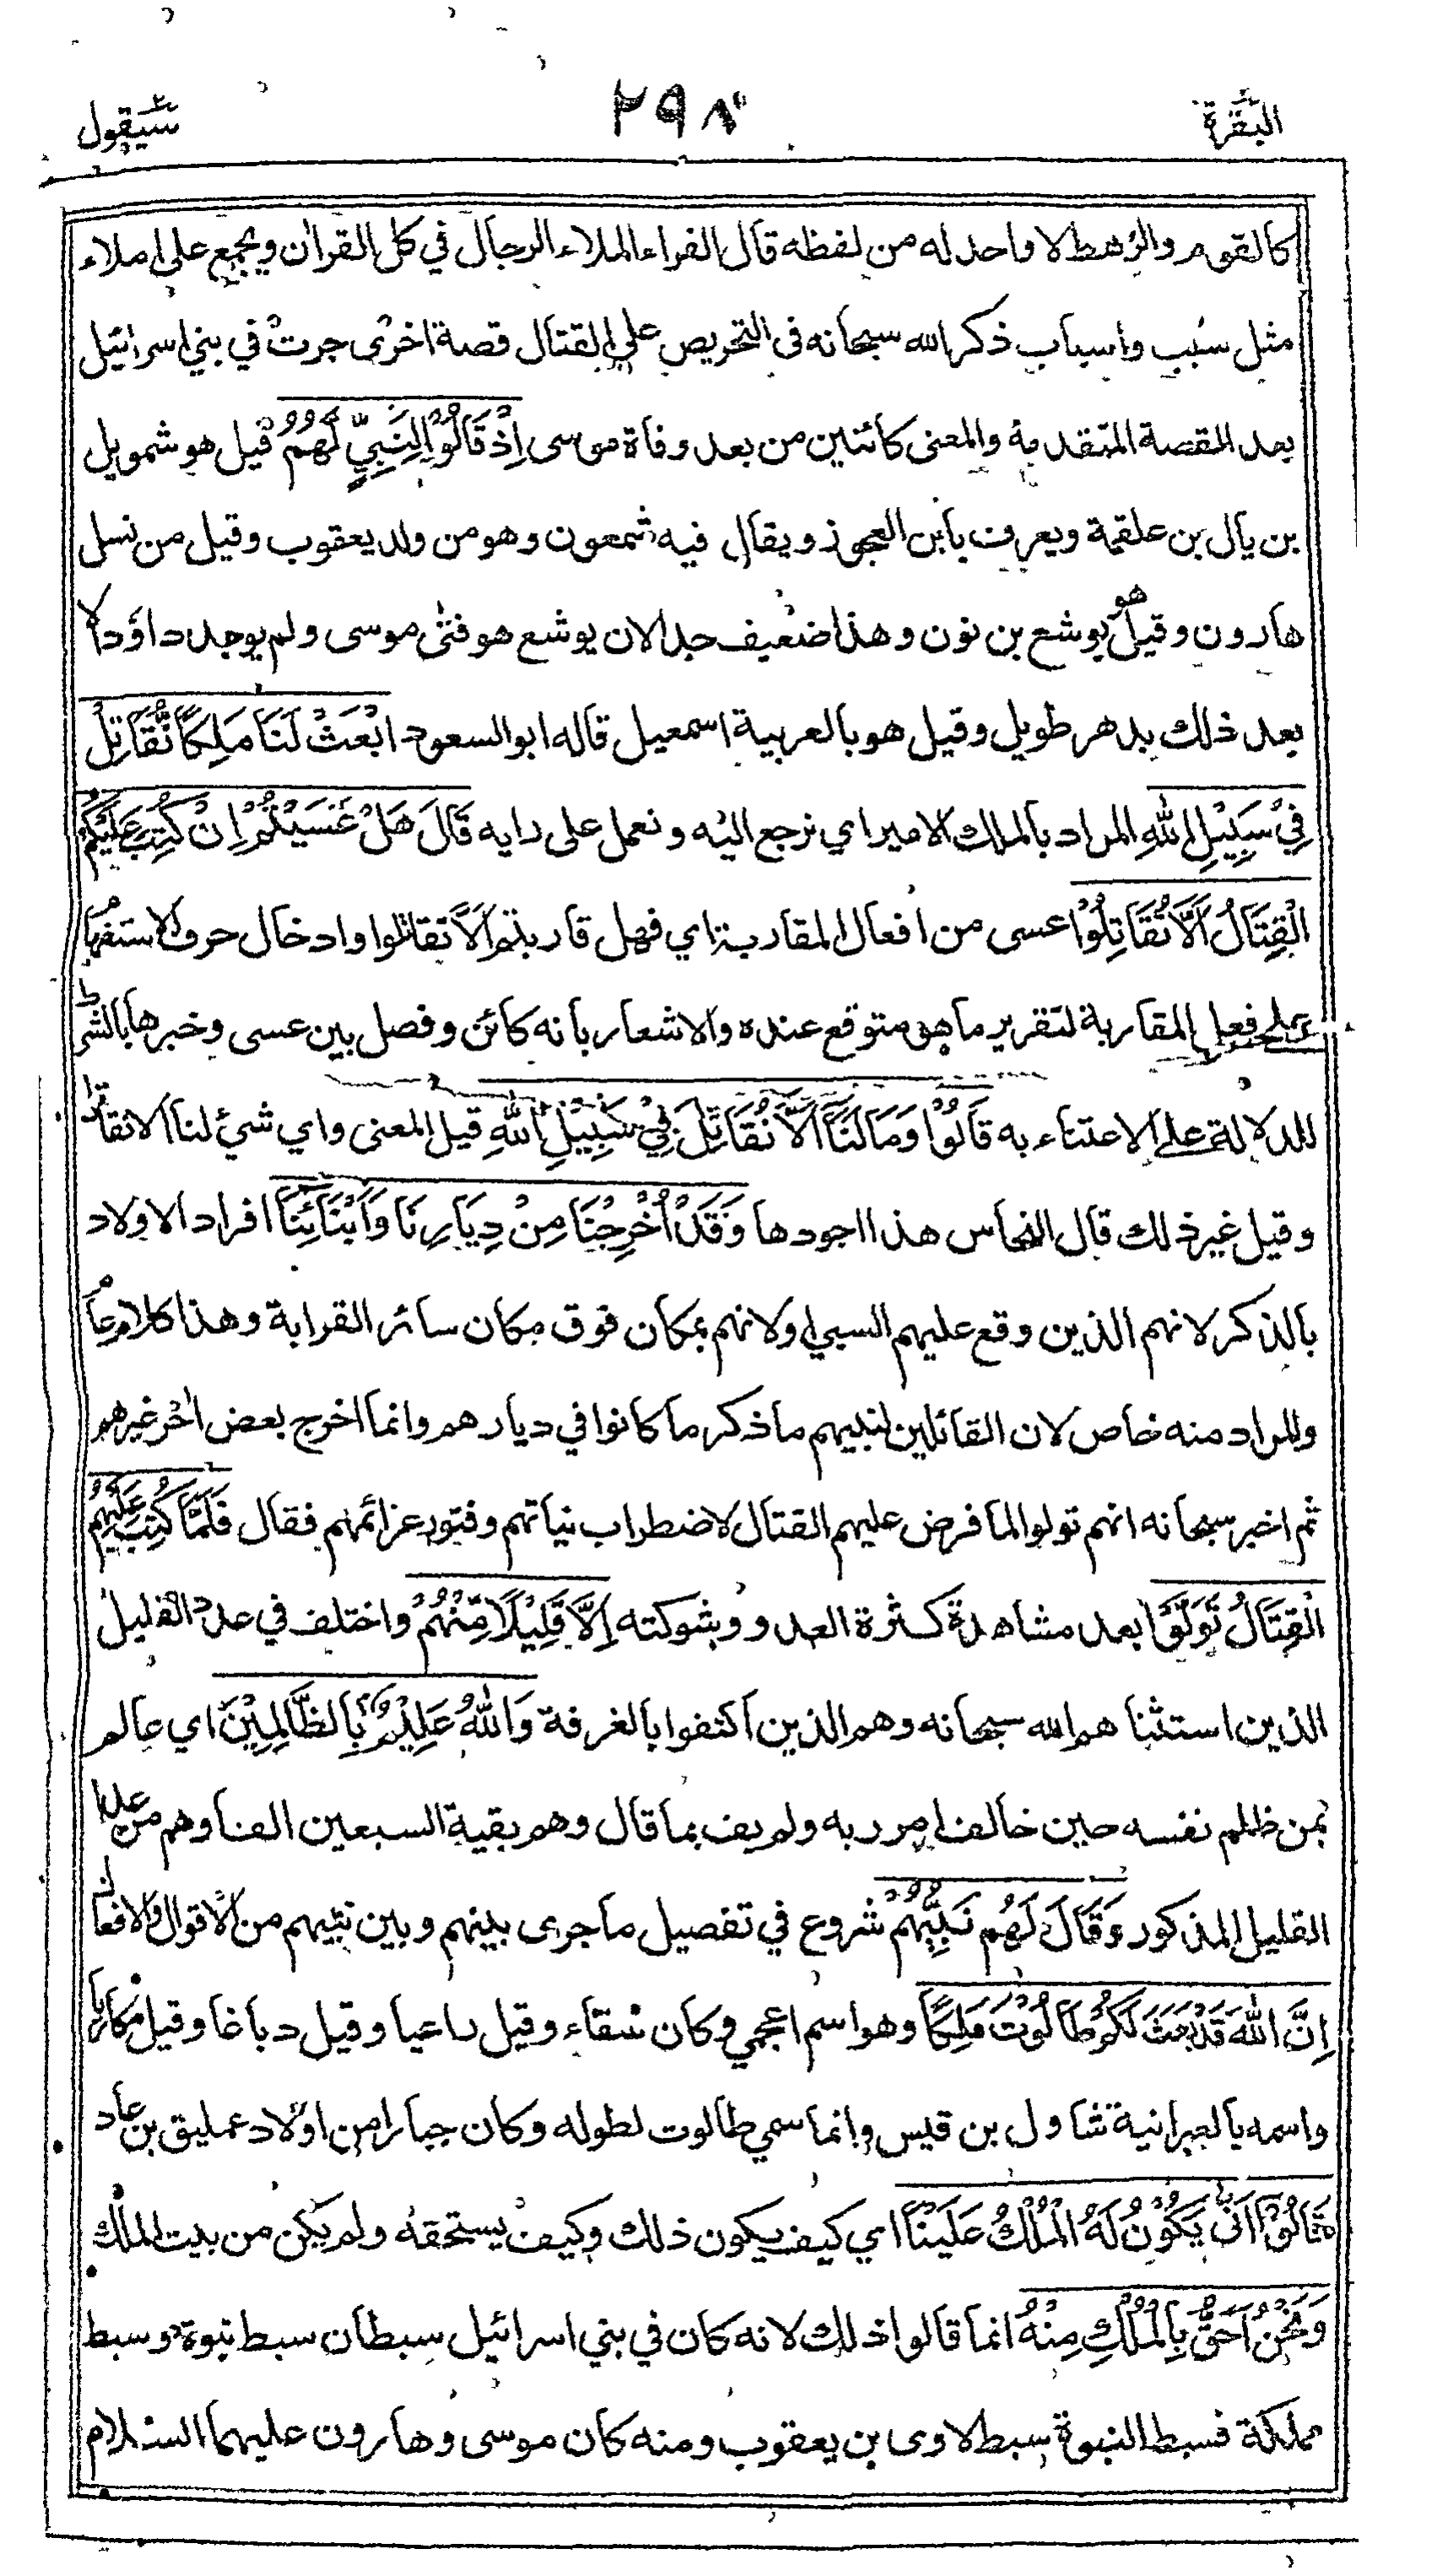 البَقَرة
٢٩٨
سَيَقول
كالقوم والرهط لا واحد له من لفظه قال الفراء الملاء الرجال في كل القرأن ويجمع على املاء
مثل سبب واسباب ذكر الله سبحانه فى التحريص على القتال قصة اخرى جرت في بني اسرائيل
بعد القصة المتقدمة والمعنى كائنين من بعد وفاة موسى اِذْ قَالُوْا لِنَبِيٍّ لَّهُمُ قيل هو شمويل
بن يال بن علقمة ويعرف بابن العجوز ويقال فيه شمعون وهو من ولد يعقوب وقيل من نسل
هارون وقيل هو يوشع بن نون وهذا ضعيف جدا لان يوشع هو فتى موسى ولم يوجد داؤد الا
بعد ذلك بدهر طويل وقيل هو بالعربية اسمعيل قاله ابو السعود ابْعَثْ لَنَا مَلِكًا نُّقَاتِلْ
فِيْ سَبِيْلِ اللّٰهِ المراد بالملك الامير اي نرجع اليه ونعمل على رايه قَالَ هَلْ عَسَيْتُمْ اِنْ كُتِبَ عَلَيْكُمُ
الْقِتَالُ اَلَّا تُقَاتِلُوْا عسى من افعال المقاربة اي فهل قاربتم الَّا تقاتلوا وادخال حرف الاستفهام
على فعل المقاربة لتقرير ما هو متوقع عنده والاشعار بانه كائن وفصل بين عسى وخبرها بالشرط
للدلالة على الاعتناء به قَالُوْا وَمَا لَنَا اَلَّا نُقَاتِلَ فِيْ سَبِيْلِ اللّٰهِ قيل المعنى واي شيء لنا الا نقاتل
وقيل غير ذلك قال النحاس هذا اجودها وَقَدْ اُخْرِجْنَا مِنْ دِيَارِنَا وَاَبْنَائِنَا افراد الاولاد
بالذكر لانهم الذين وقع عليهم السبي او لانهم بمكان فوق مكان سائر القرابة وهذا كلام عام
والمراد منه خاص لان القائلين لنبيهم ما ذكر ما كانوا في ديارهم وانما اخرج بعض اخر غيرهم
ثم اخبر سبحانه انهم تولوا لما فرض عليهم القتال لاضطراب نياتهم وفتور عزائمهم فقال فَلَمَّا كُتِبَ عَلَيْهِمُ
الْقِتَالُ تَوَلَّوْا بعد مشاهدة كثرة العدو وشوكته اِلَّا قَلِيْلًا مِّنْهُمْ واختلف في عدد القليل
الذين استثناهم الله سبحانه وهم الذين اكتفوا بالغرفة وَاللّٰهُ عَلِيْمٌ بِالظَّالِمِيْنَ اي عالم
بمن ظلم نفسه حين خالف امر ربه ولم يف بما قال وهم بقية السبعين الفا وهم من عدا
القليل المذكور وَقَالَ لَهُم نَبِيُّهُمْ شروع في تفصيل ما جرى بينهم وبين نبيهم من الاقوال والافعال
اِنَّ اللّٰهَ قَدْ بَعَثَ لَكُمْ طَالُوْتَ مَلِكًا وهو اسم اعجمي وكان سقاء وقيل راعيا وقيل دباغا وقيل مكاريا
واسمه بالعبرانية شاول بن قيس وانما سمي طالوت لطوله وكان جبارا من اولاد عمليق بن عاد
قَالُوْا اَنّٰى يَكُوْنُ لَهُ الْمُلْكُ عَلَيْنَا اي كيف يكون ذلك وكيف يستحقه ولم يكن من بيت الملك
وَنَحْنُ اَحَقُّ بِالْمُلْكِ مِنْهُ انما قالوا ذلك لانه كان في بني اسرائيل سبطان سبط نبوة وسبط
مملكة فسبط النبوة سبط لاوى بن يعقوب ومنه كان موسى وهارون عليهما السلام